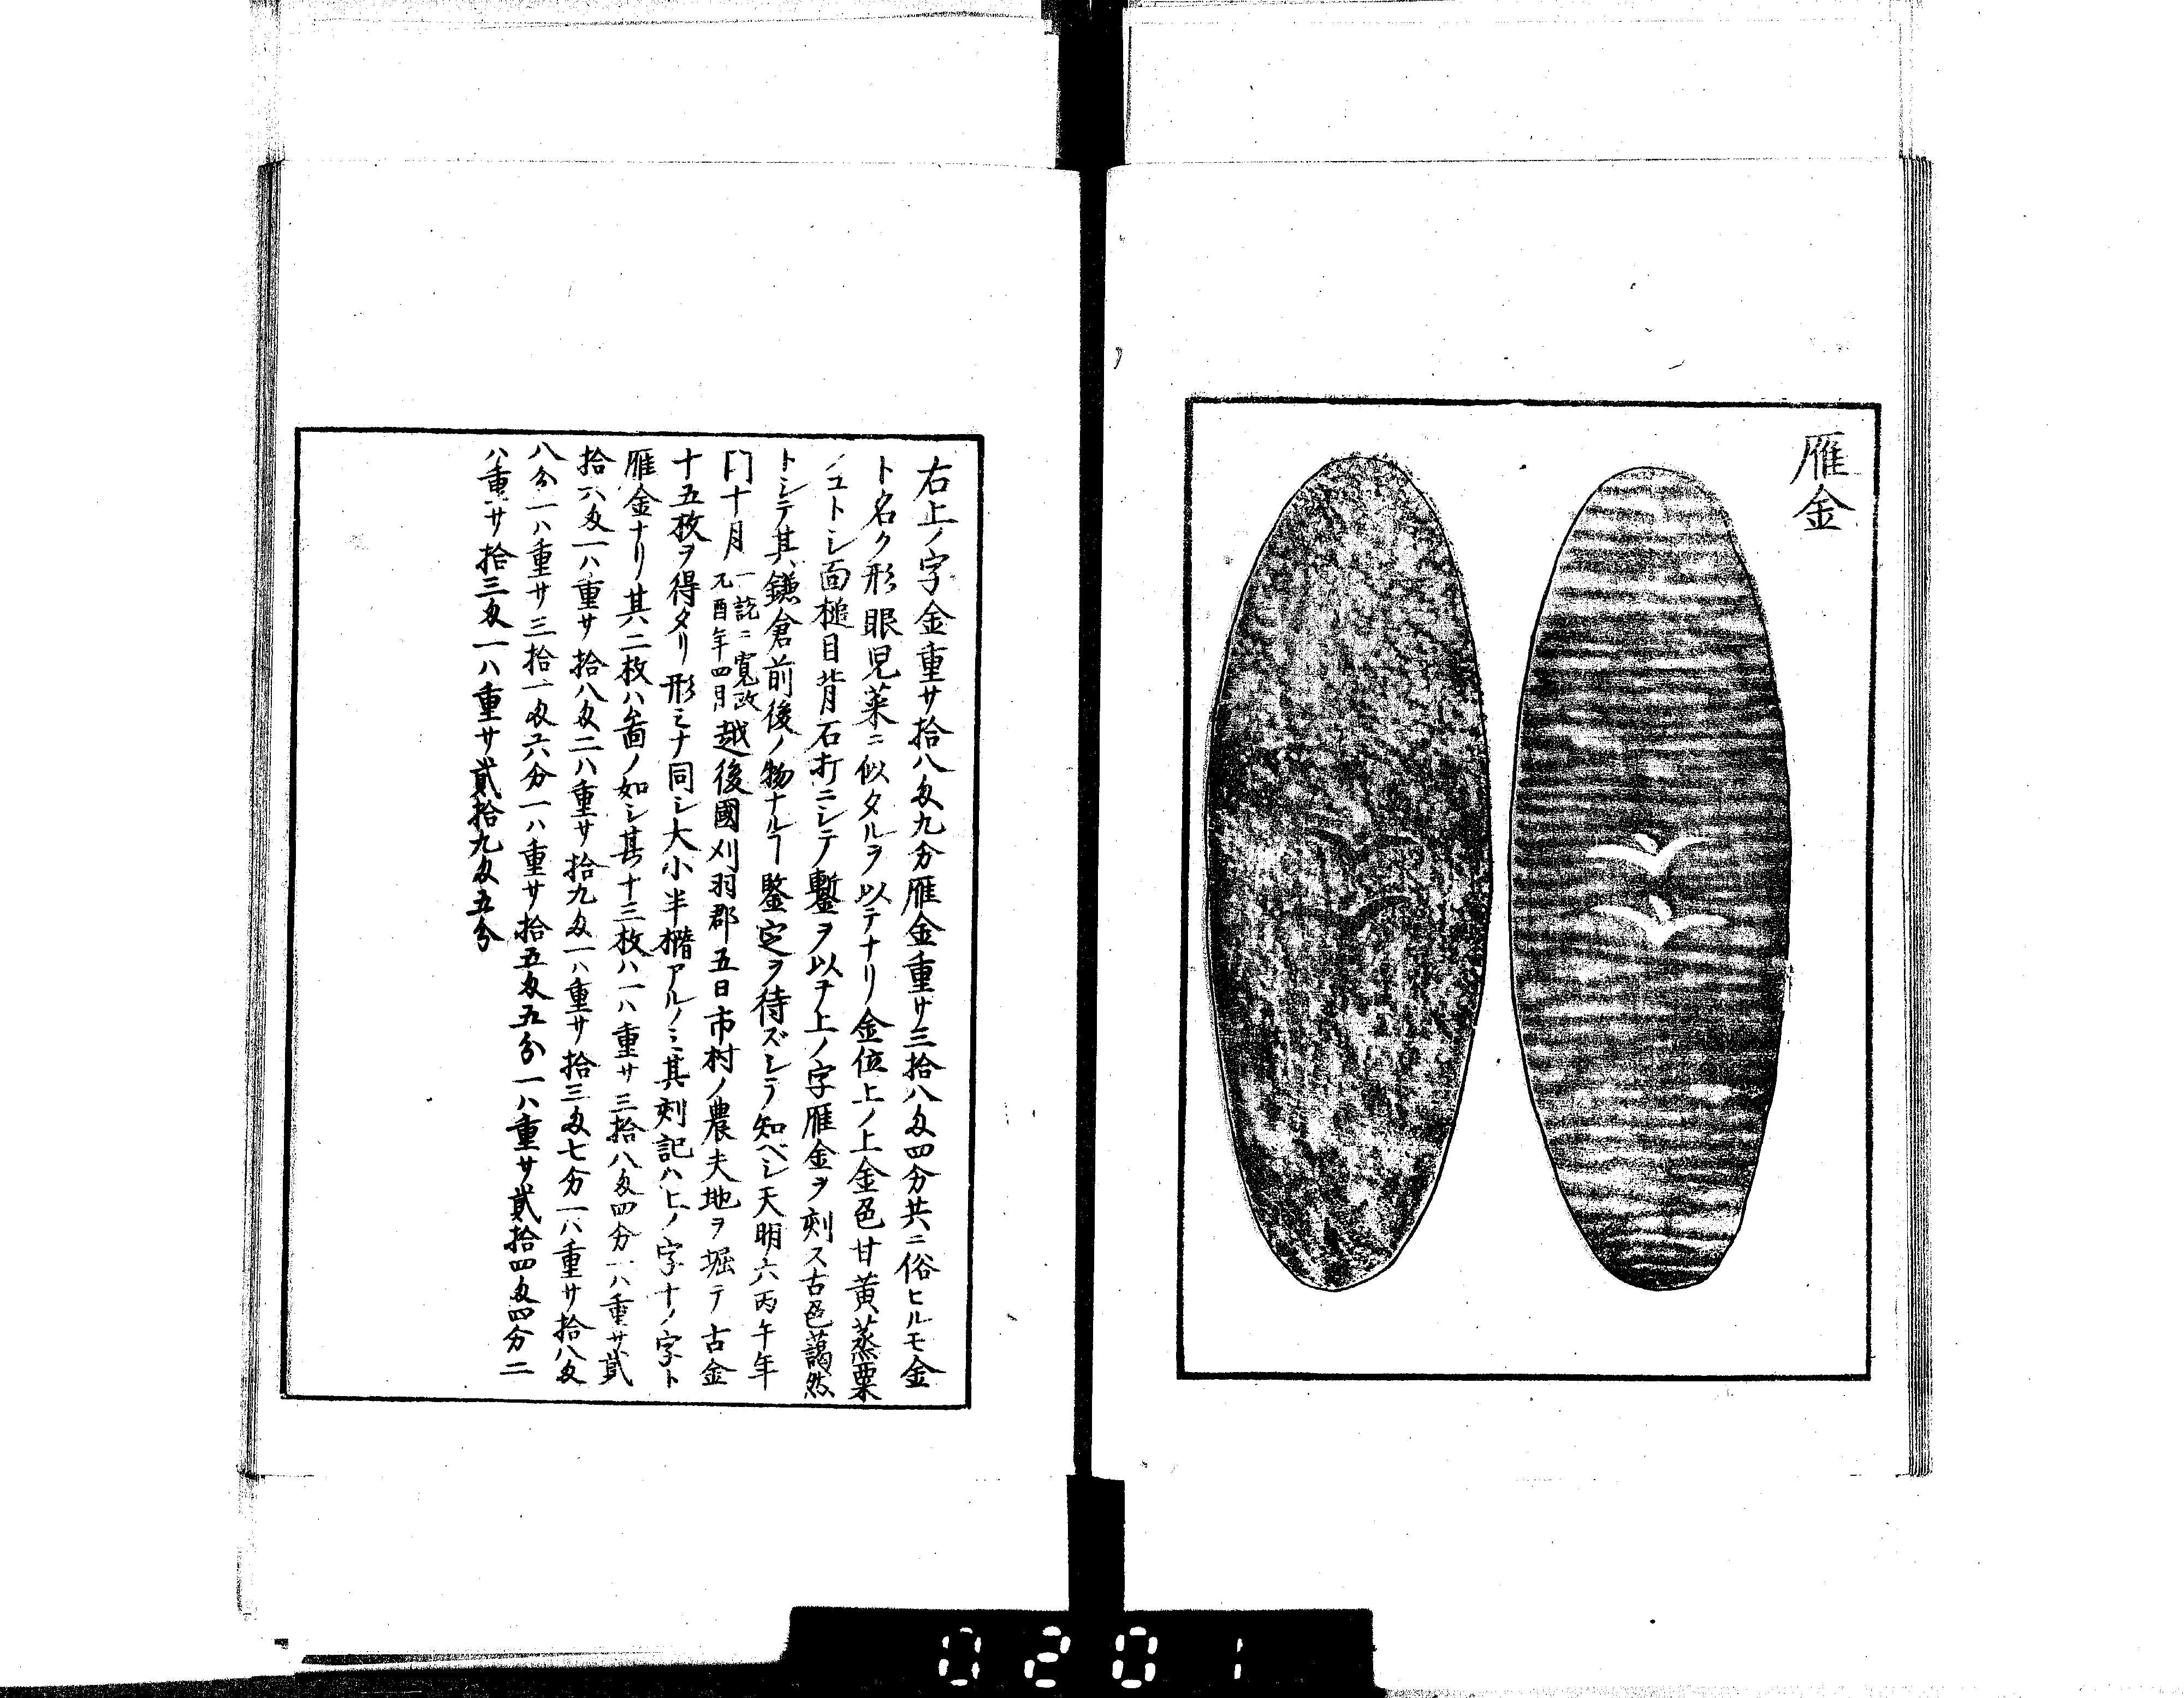 雁金
右上ノ字金重サ拾八匁九分雁金重サ三拾八匁四分共ニ俗ヒルモ金
ト名ク形眼児菜ニ似タルヲ以テナリ金位上ノ上金色甘黄蒸栗
ノコトシ面槌目背石打ニシテ鏨ヲ以テ上ノ字雁金ヲ刻ス古色藹然
トシテ其鎌倉前後ノ物ナルヿ鑒定ヲ待ズシテ知ベシ天明六丙午年
十月一説ニ寛政
元酉年四月越後國刈羽郡五日市村ノ農夫地ヲ堀テ古金
十五枚ヲ得タリ形ミナ同シ大小半楕アルノミ其刻記ハ上ノ字十ノ字ト
雁金ナリ其二枚ハ啚ノ如シ其十三枚ハ一ハ重サ三拾八匁四分一ハ重サ貳
拾六匁一ハ重サ拾八匁二ハ重サ拾九匁一ハ重サ拾三匁七分一ハ重サ拾八匁
八分一ハ重サ三拾一匁六分一ハ重サ拾五匁五分一ハ重サ貳拾四匁四分二
ハ重サ拾三匁一ハ重サ貳拾九匁五分
0201